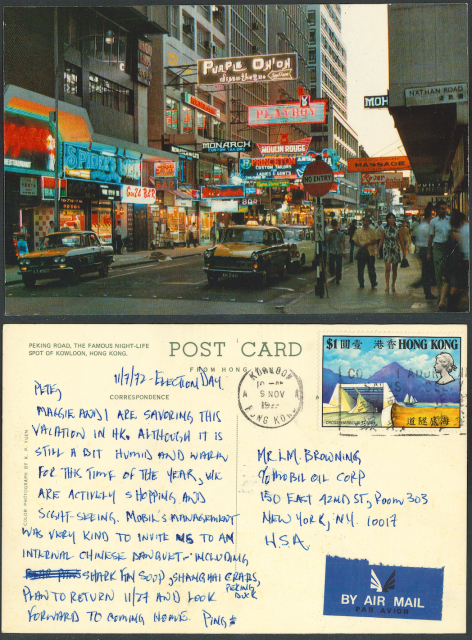 PURPLE ONION
discotheque
PLAYBOY
MOULIN ROUGE
PRINCE
MONARCH
MASSAGE
NATHAN ROAD
MOH
NO ENTRY
RESTAURANT
BAR
PEKING ROAD, THE FAMOUS NIGHT-LIFE
SPOT OF KOWLOON, HONG KONG.
POST CARD
FROM HONG K
CORRESPONDENCE
COLOR PHOTOGRAPH BY K. P. YUEN
11/7/72 - ELECTION DAY
PETE,
MAGGIE AND I ARE SAVORING THIS
VACATION IN HK. ALTHOUGH IT IS
STILL A BIT HUMID AND WARM
FOR THIS TIME OF THE YEAR, WE
ARE ACTIVELY SHOPPING AND
SIGHT-SEEING. MOBIL'S MANAGEMENT
WAS VERY KIND TO INVITE US TO AN
INTERNAL CHINESE BANQUET - INCLUDING
SHARK FIN SOUP, SHANGHAI CRABS,
PEKING
DUCK
PLAN TO RETURN 11/27 AND LOOK
FORWARD TO COMING HOME. PING
KOWLOON
9 NOV
HONG KONG
$1 圓壹 港香 HONG KONG
道隧底海
MR. L.M. BROWNING
c/o MOBIL OIL CORP
150 EAST 42ND ST, ROOM 303
NEW YORK, N.Y. 10017
U.S.A.
BY AIR MAIL
PAR AVION